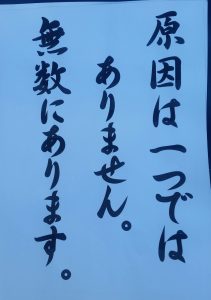 原因は一つでは
ありません。
無数にあります。